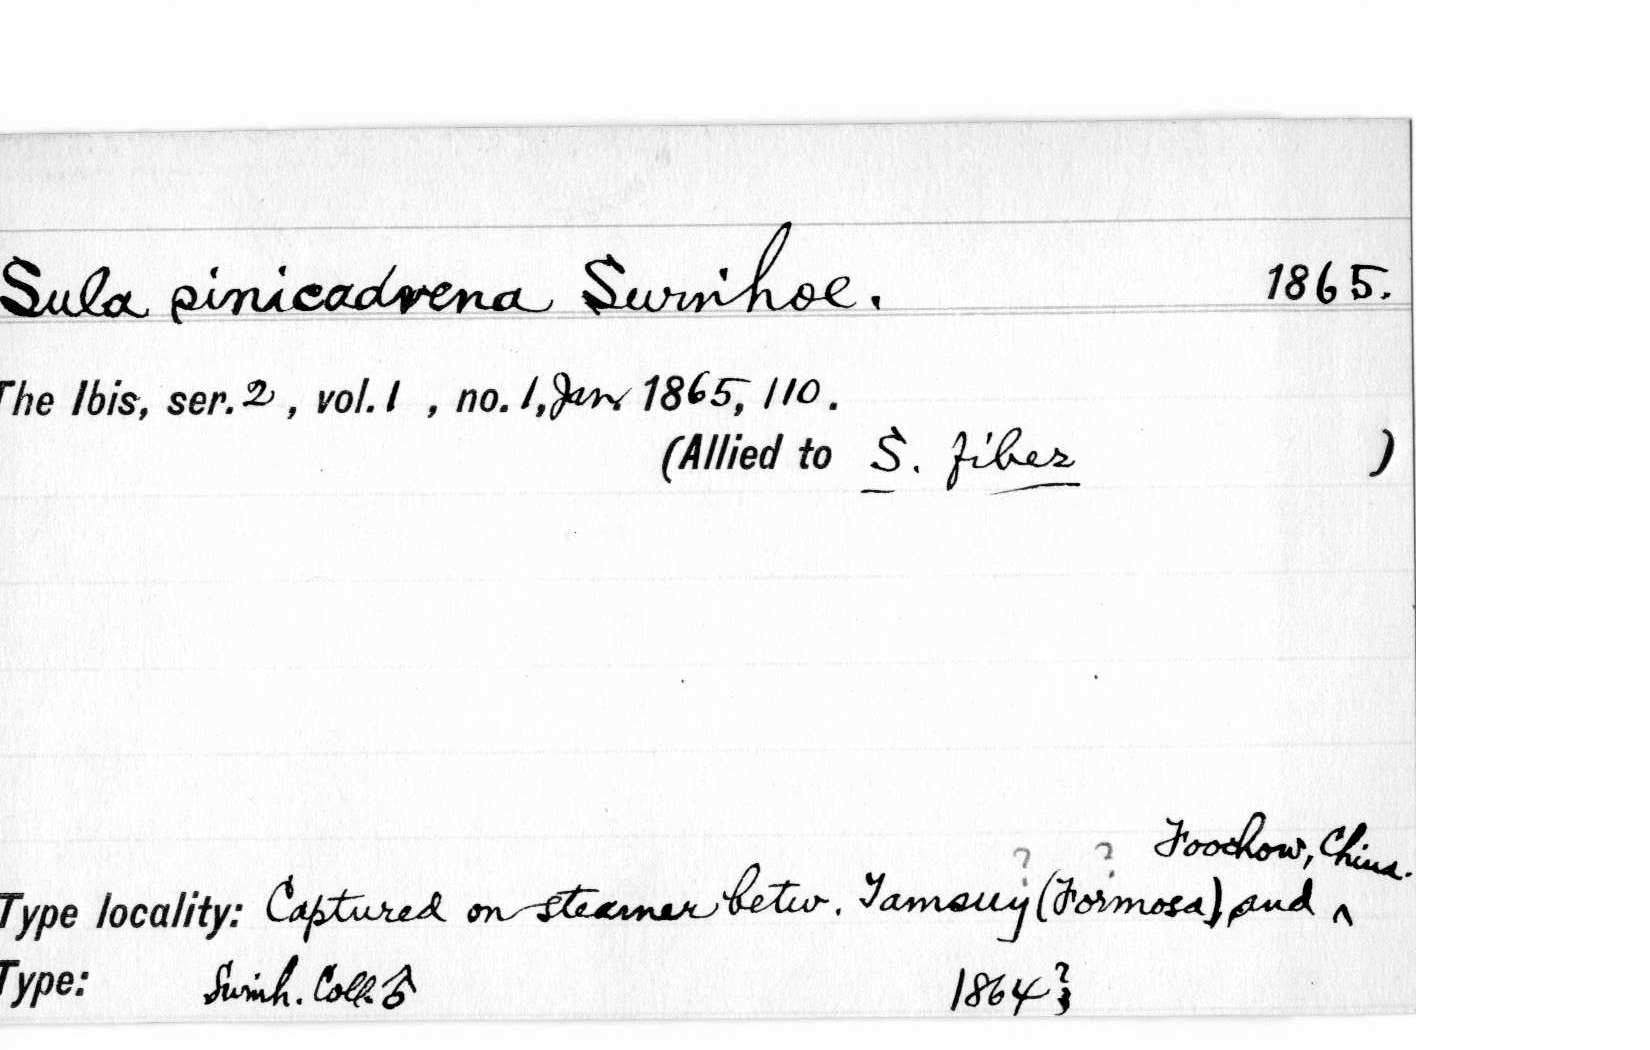 Sula sinicadvena Swinhoe. 1865.
The Ibis, ser. 2, vol. 1, no. 1, Jan. 1865, 110.
(Allied to S. fiber )
? ? Foochow, China.
Type locality: Captured on steamer betw. Tamsuy (Formosa), and ^
Type: Swinh. Coll. 1864?